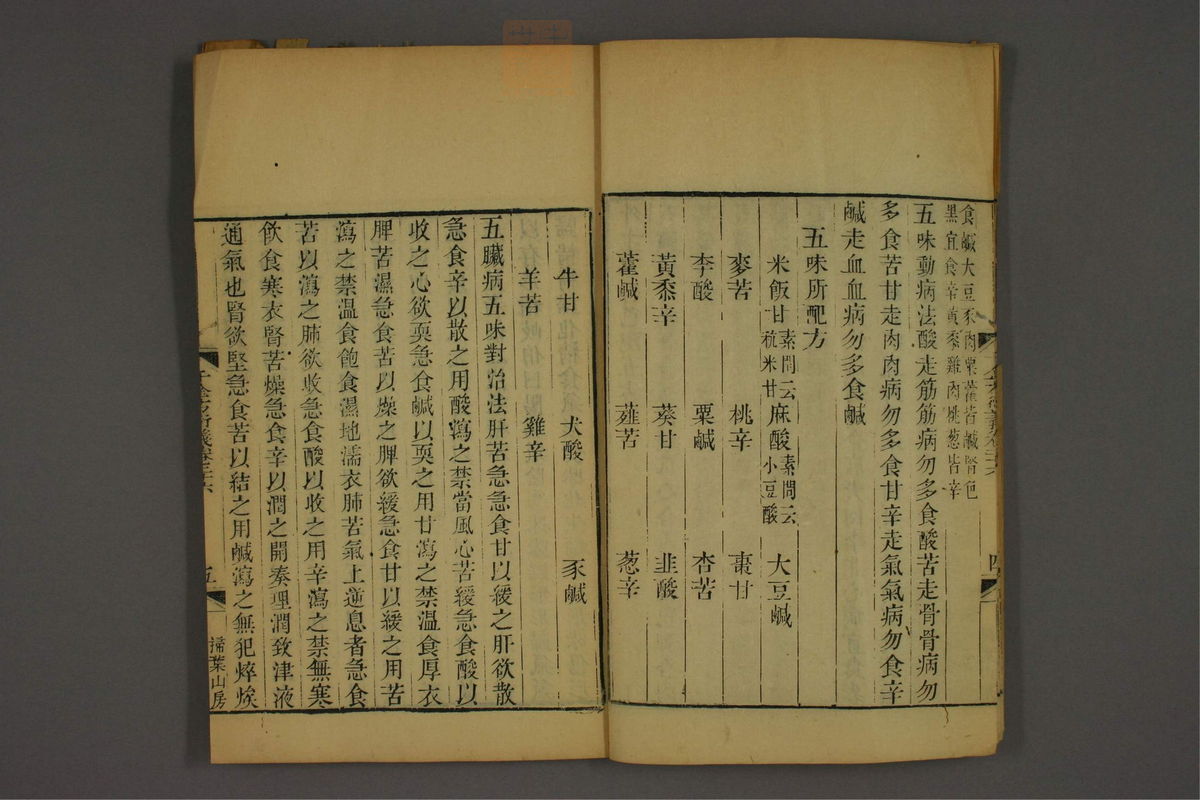 食鹹大豆豕肉栗藿皆鹹腎色
黑宜食辛黃黍雞肉桃葱皆辛
五味動病法酸走筋筋病勿多食酸苦走骨骨病勿
多食苦甘走肉肉病勿多食甘辛走氣氣病勿食辛
鹹走血血病勿多食鹹
五味所配方
米飯甘素問云秔米甘 麻酸素問云小豆酸 大豆鹹
麥苦 桃辛 棗甘
李酸 栗鹹 杏苦
黃黍辛 葵甘 韭酸
藿鹹 薤苦 葱辛
四
牛甘 犬酸 豕鹹
羊苦 雞辛
五臟病五味對治法肝苦急急食甘以緩之肝欲散
急食辛以散之用酸瀉之禁當風心苦緩急食酸以
收之心欲耎急食鹹以耎之用甘瀉之禁溫食厚衣
脾苦濕急食苦以燥之脾欲緩急食甘以緩之用苦
瀉之禁溫食飽食濕地濡衣肺苦氣上逆息者急食
苦以瀉之肺欲收急食酸以收之用辛瀉之禁無寒
飲食寒衣腎苦燥急食辛以潤之開奏理潤致津液
通氣也腎欲堅急食苦以結之用鹹瀉之無犯焠㶼
千金方衍義卷二十六
五
掃葉山房